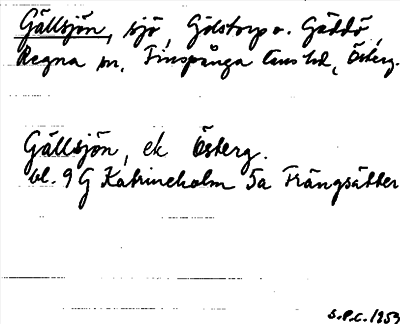 Gällsjön, sjö, Gölstorp o. Gäddö,
Regna sn, Finspånga läns hd, Österg.
Gällsjön, ek Österg.
bl. 9 G Katrineholm 5a Trängsätter
S.P.C. 1953